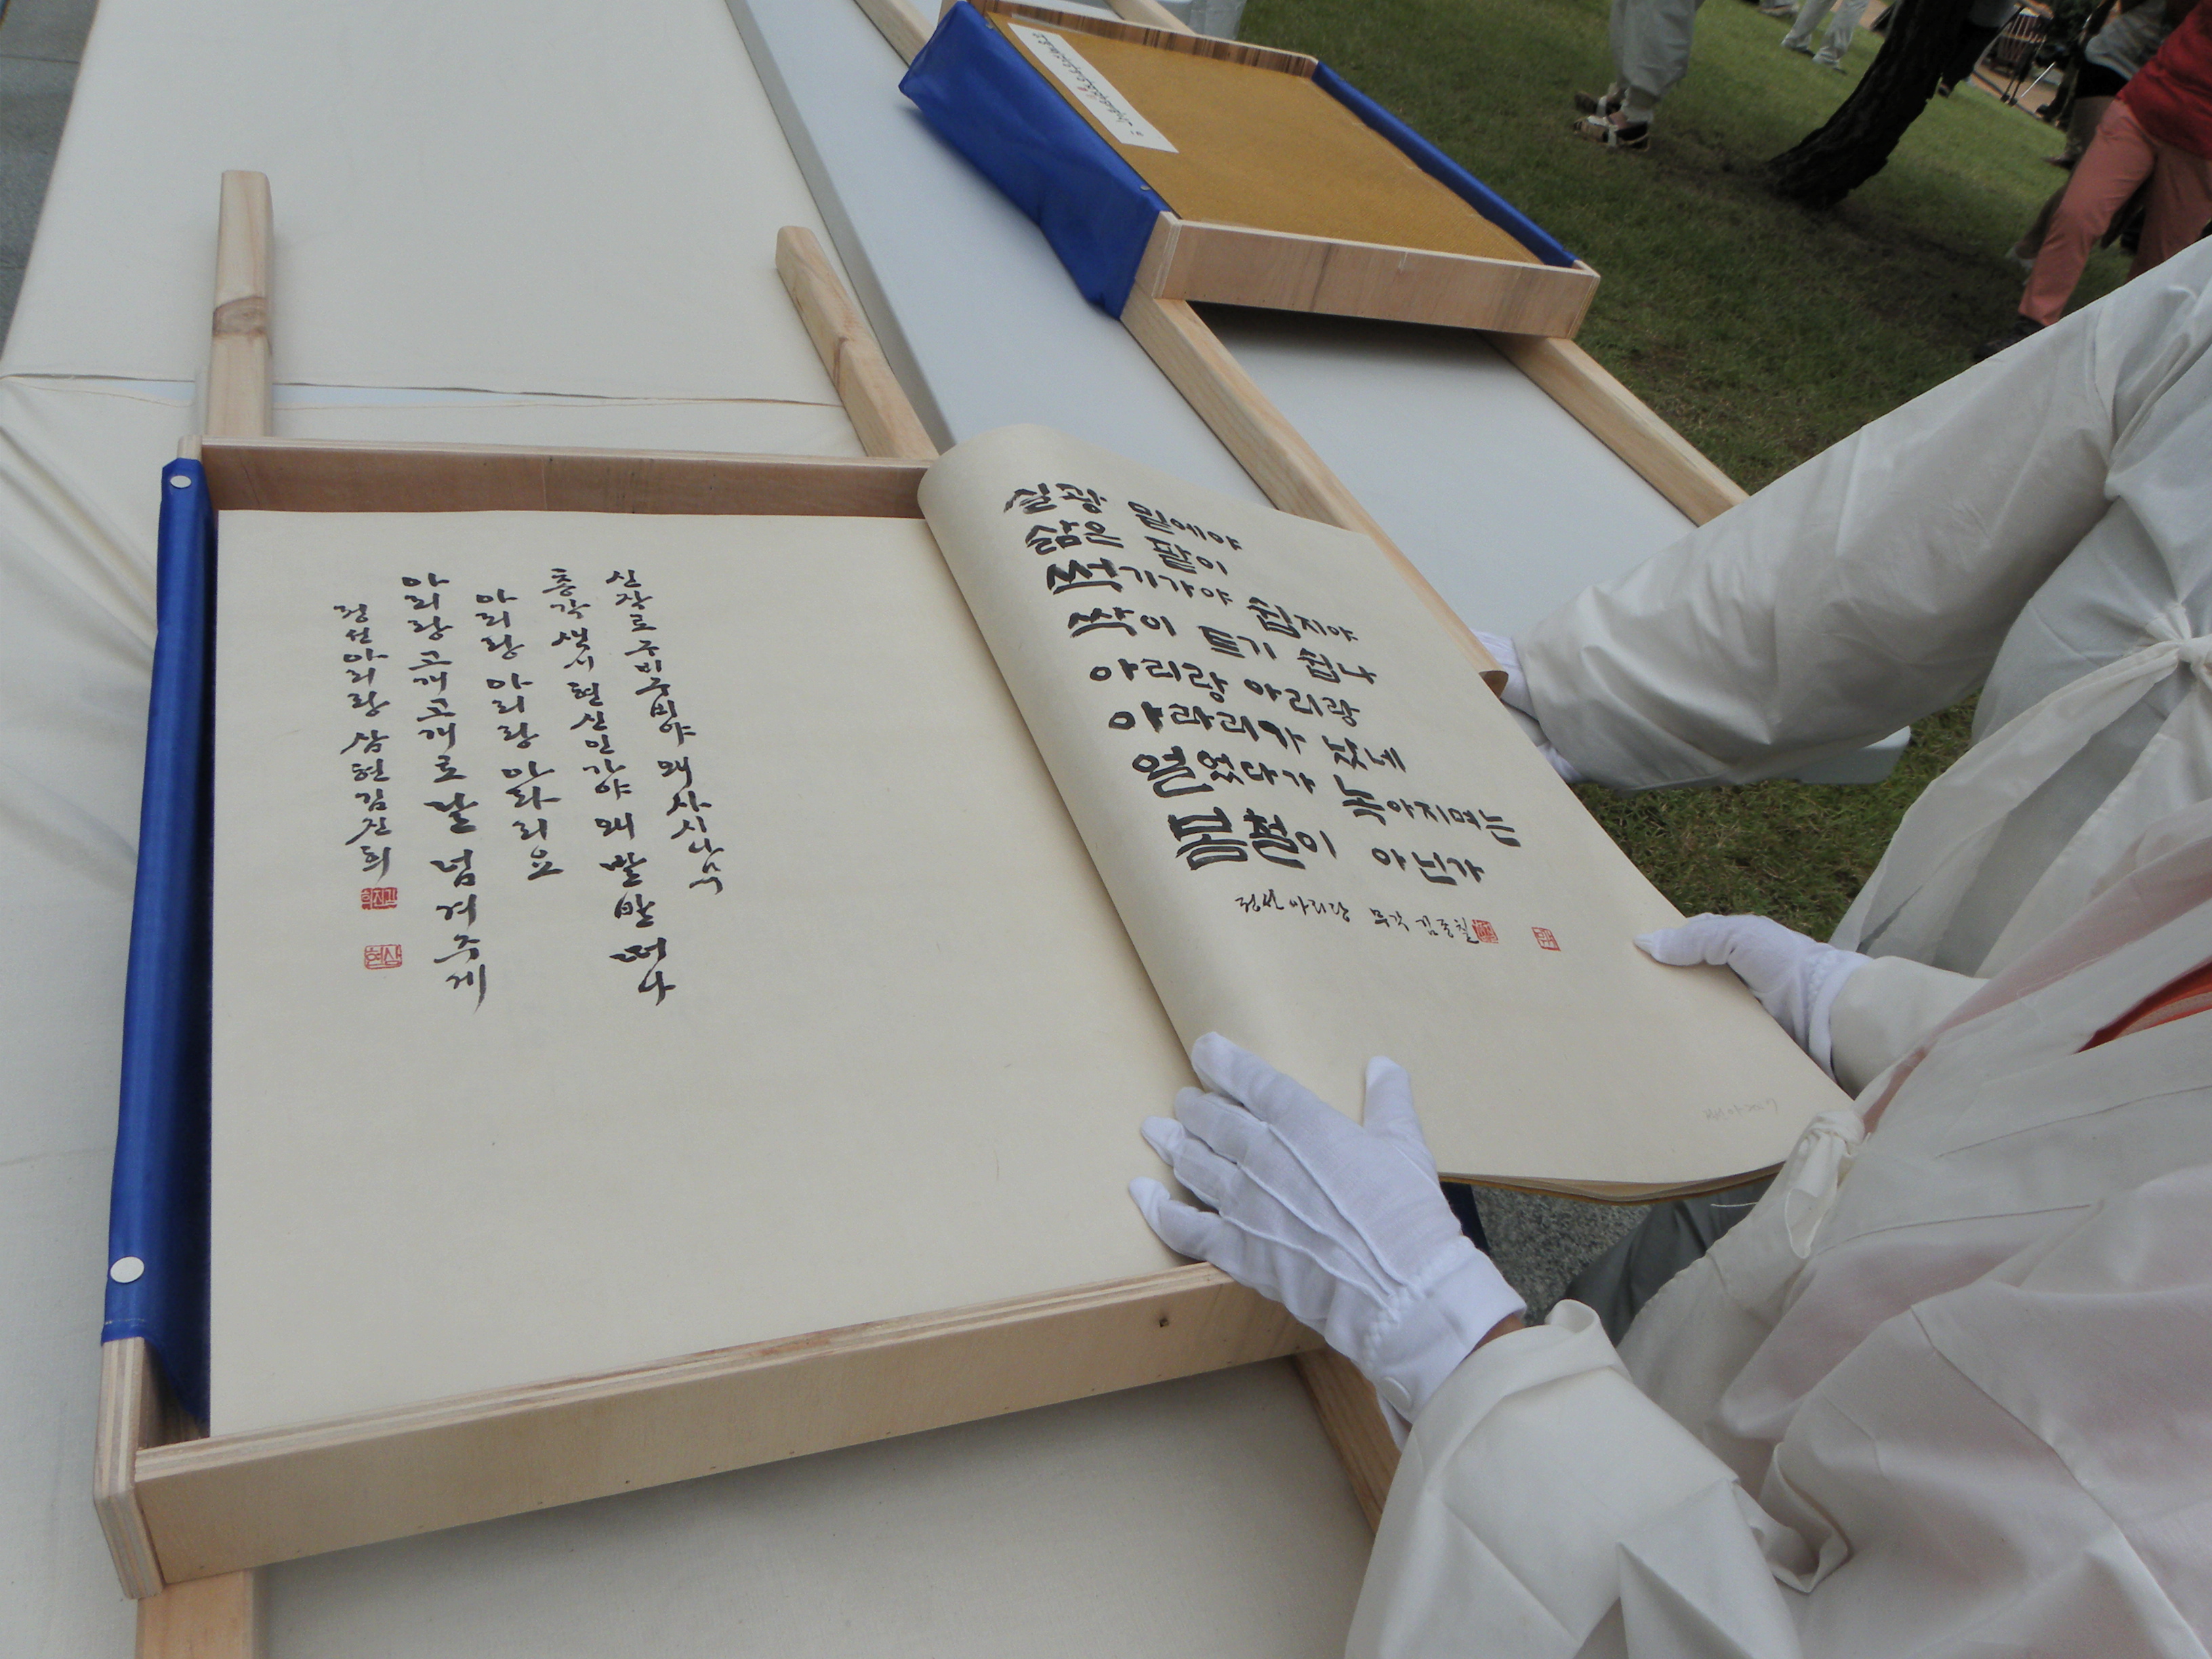 실광 밑에야
삶은 팥이
썩기가야 쉽지야
싹이 트기 쉽나
아리랑 아리랑
아라리가 났네
얼었다가 녹아지며는
봄철이 아닌가
정선아리랑 무각 김종칠
신작로 구비구비야 왜 사시나
총각 색시 현신인가야 왜 발발 떠나
아리랑 아리랑 아라리요
아리랑 고개고개로 날 넘겨주게
정선아리랑 삼현 김진희